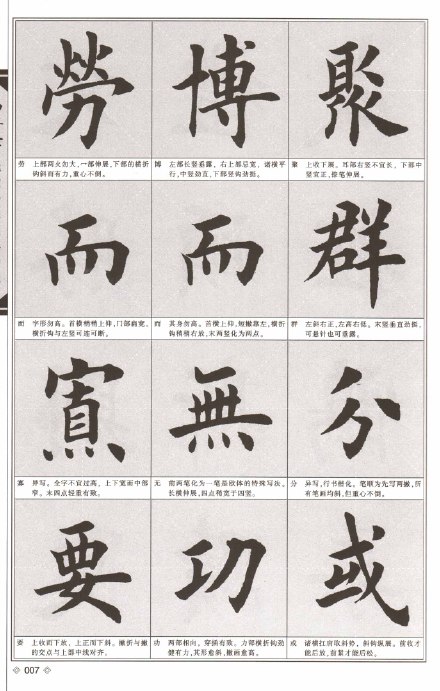 勞 博 聚
劳 上部两火勿大,一部伸展,下部的横折
钩斜而有力,重心不倒。
博 左部长竖垂露,右上部忌宽,诸横平
行,中竖劲直,下部竖钩劲挺。
聚 上收下展,耳部右竖不宜长,下部中
竖宜正,捺笔伸展。
而 而 群
而 字形勿高。首横稍稍上仰,门部稍宽,
横折钩与左竖可连可断。
而 其身勿高。首横上仰,短撇靠左,横折
钩稍稍右放,末两竖化为两点。
群 左斜右正,左高右低。末竖垂直劲挺,
可悬针也可垂露。
寡 無 分
寡 异写。全字不宜过高,上下宽而中部
窄。末四点轻重有致。
无 前两笔化为一笔是欧体的特殊写法。
长横伸展,四点稍宽于四竖。
分 异写,行书楷化。笔顺为先写两撇,所
有笔画均斜,但重心不倒。
要 功 或
要 上收而下放,上正而下斜。撇折与撇
的交点与上部中线对齐。
功 两部相向,穿插有致。力部横折钩劲
健有力,其形愈斜,撇画愈高。
或 诸横扛肩取斜势,斜钩纵展。前收才
能后放,前紧才能后松。
007